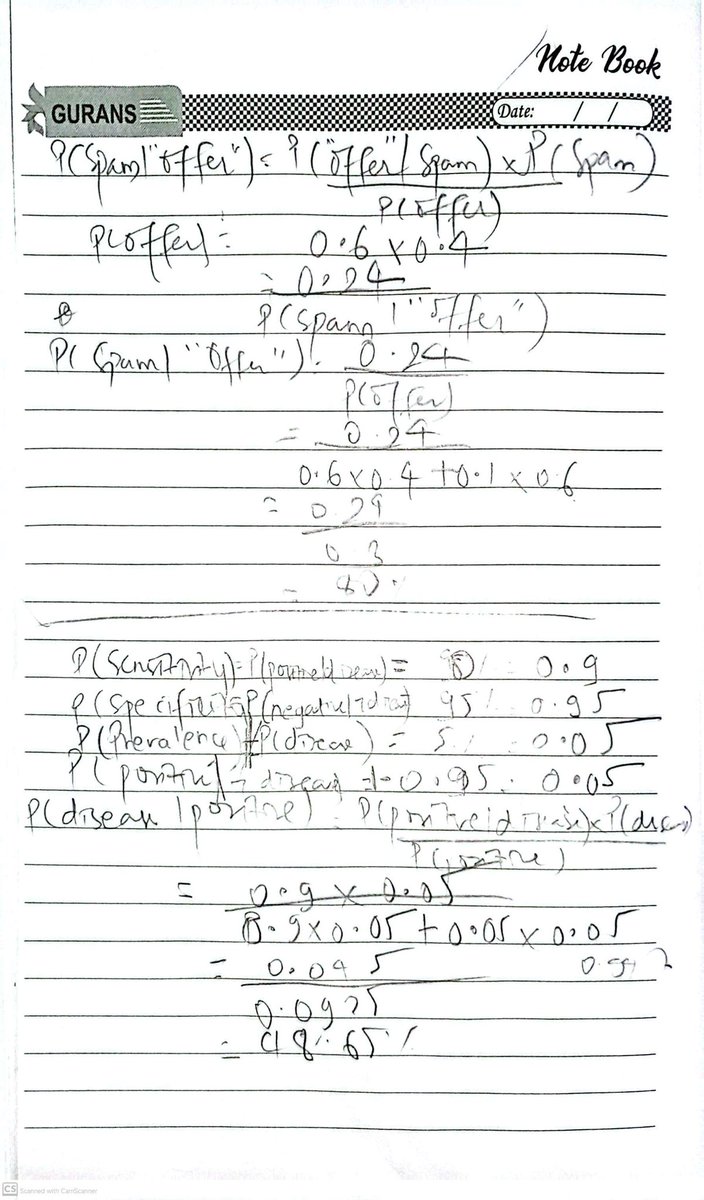 Note Book
GURANS
Date: / /
P(Spam|"offer") = P("offer"/Spam) x P(Spam)
P(offer)
P(offer) = 0.6 x 0.4
= 0.24
P(spam|"offer")
P(Spam|"Offer") = 0.24
P(offer)
= 0.24
0.6 x 0.4 + 0.1 x 0.6
= 0.24
0.3
= 80%
P(Sensitivity) = P(positive|disease) = 90% = 0.9
P(Specificity) = P(negative|¬disease) 95% = 0.95
P(Prevalence) P(disease) = 5% = 0.05
P(positive|¬disease) = 1-0.95 = 0.05
P(disease|positive) = P(positive|disease) x P(disease)
P(positive)
= 0.9 x 0.05
0.9x0.05 + 0.05 x 0.05
= 0.045
0.0925
= 48.65%
CS Scanned with CamScanner